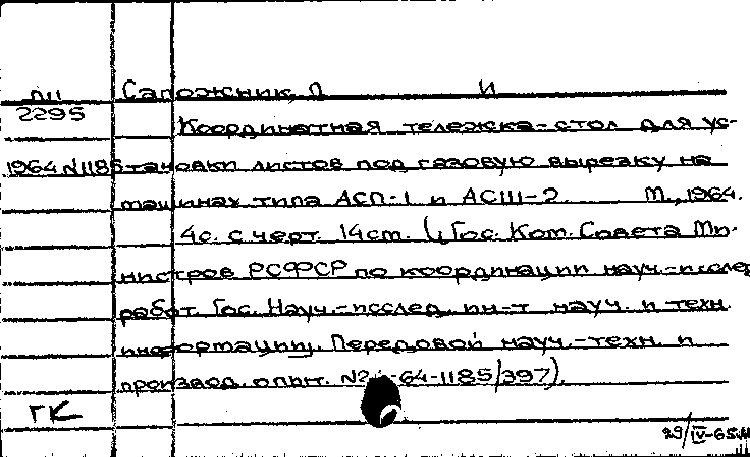 Сапожник, Л И
2295
Координатная тележка-стол для ус-
1964 N1185 тановки листов под газовую вырезку на
машинах типа АСП-1 и АСШ-2. М., 1964.
4с. с черт. 14см. (Гос. Ком. Совета Ми-
нистров РСФСР по координации науч.-исслед
работ. Гос. Науч.-исслед. ин-т науч. и техн.
информации. Передовой науч.-техн. и
производ. опыт. -64-1185/397).
ГК
29/IV-65